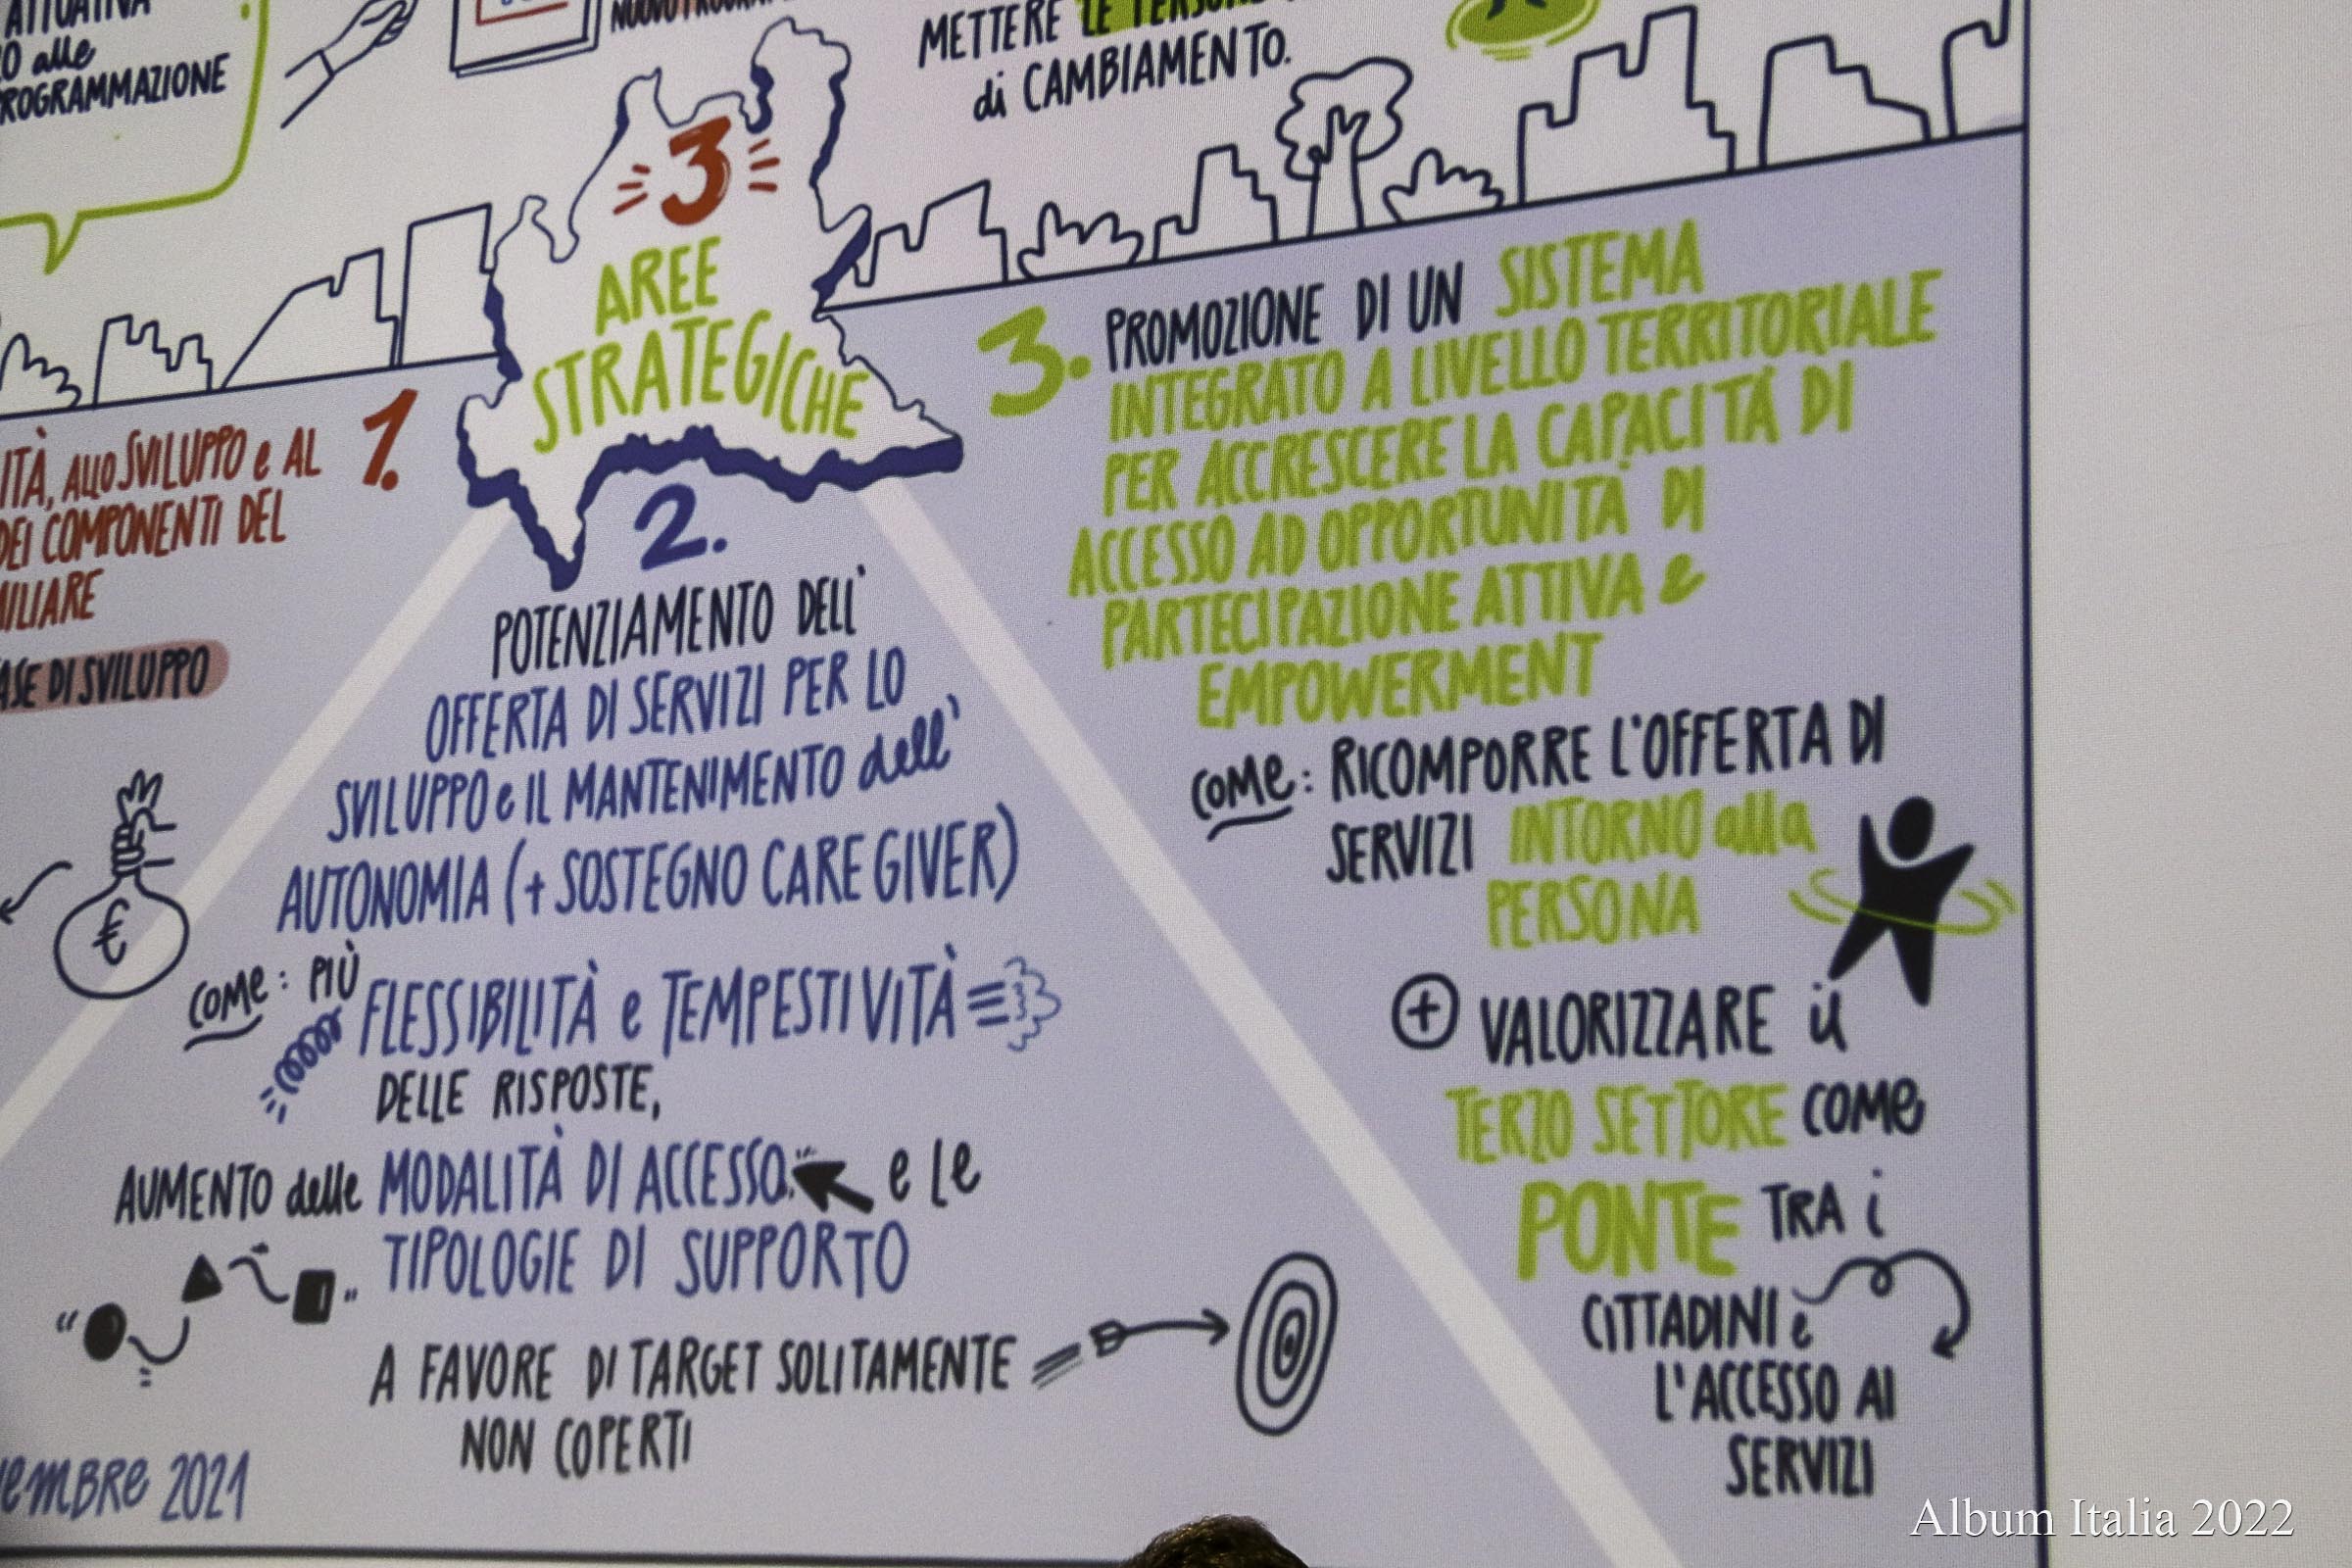 ATTUATIVA
alle
PROGRAMMAZIONE
METTERE LE PERSONE
di CAMBIAMENTO.
3
AREE
STRATEGICHE
1.
ALLO SVILUPPO e AL
DEI COMPONENTI DEL
DI SVILUPPO
€
2.
POTENZIAMENTO DELL'
OFFERTA DI SERVIZI PER LO
SVILUPPO e IL MANTENIMENTO dell'
AUTONOMIA (+ SOSTEGNO CARE GIVER)
COME: PIÙ
FLESSIBILITÀ e TEMPESTIVITÀ
DELLE RISPOSTE,
AUMENTO delle MODALITÀ DI ACCESSO e le
TIPOLOGIE DI SUPPORTO
A FAVORE DI TARGET SOLITAMENTE
NON COPERTI
2021
3. PROMOZIONE DI UN SISTEMA
INTEGRATO A LIVELLO TERRITORIALE
PER ACCRESCERE LA CAPACITÁ DI
ACCESSO AD OPPORTUNITÀ DI
PARTECIPAZIONE ATTIVA e
EMPOWERMENT
COME: RICOMPORRE L'OFFERTA DI
SERVIZI INTORNO alla
PERSONA
+ VALORIZZARE il
TERZO SETTORE COME
PONTE TRA i
CITTADINI e
L'ACCESSO AI
SERVIZI
Album Italia 2022